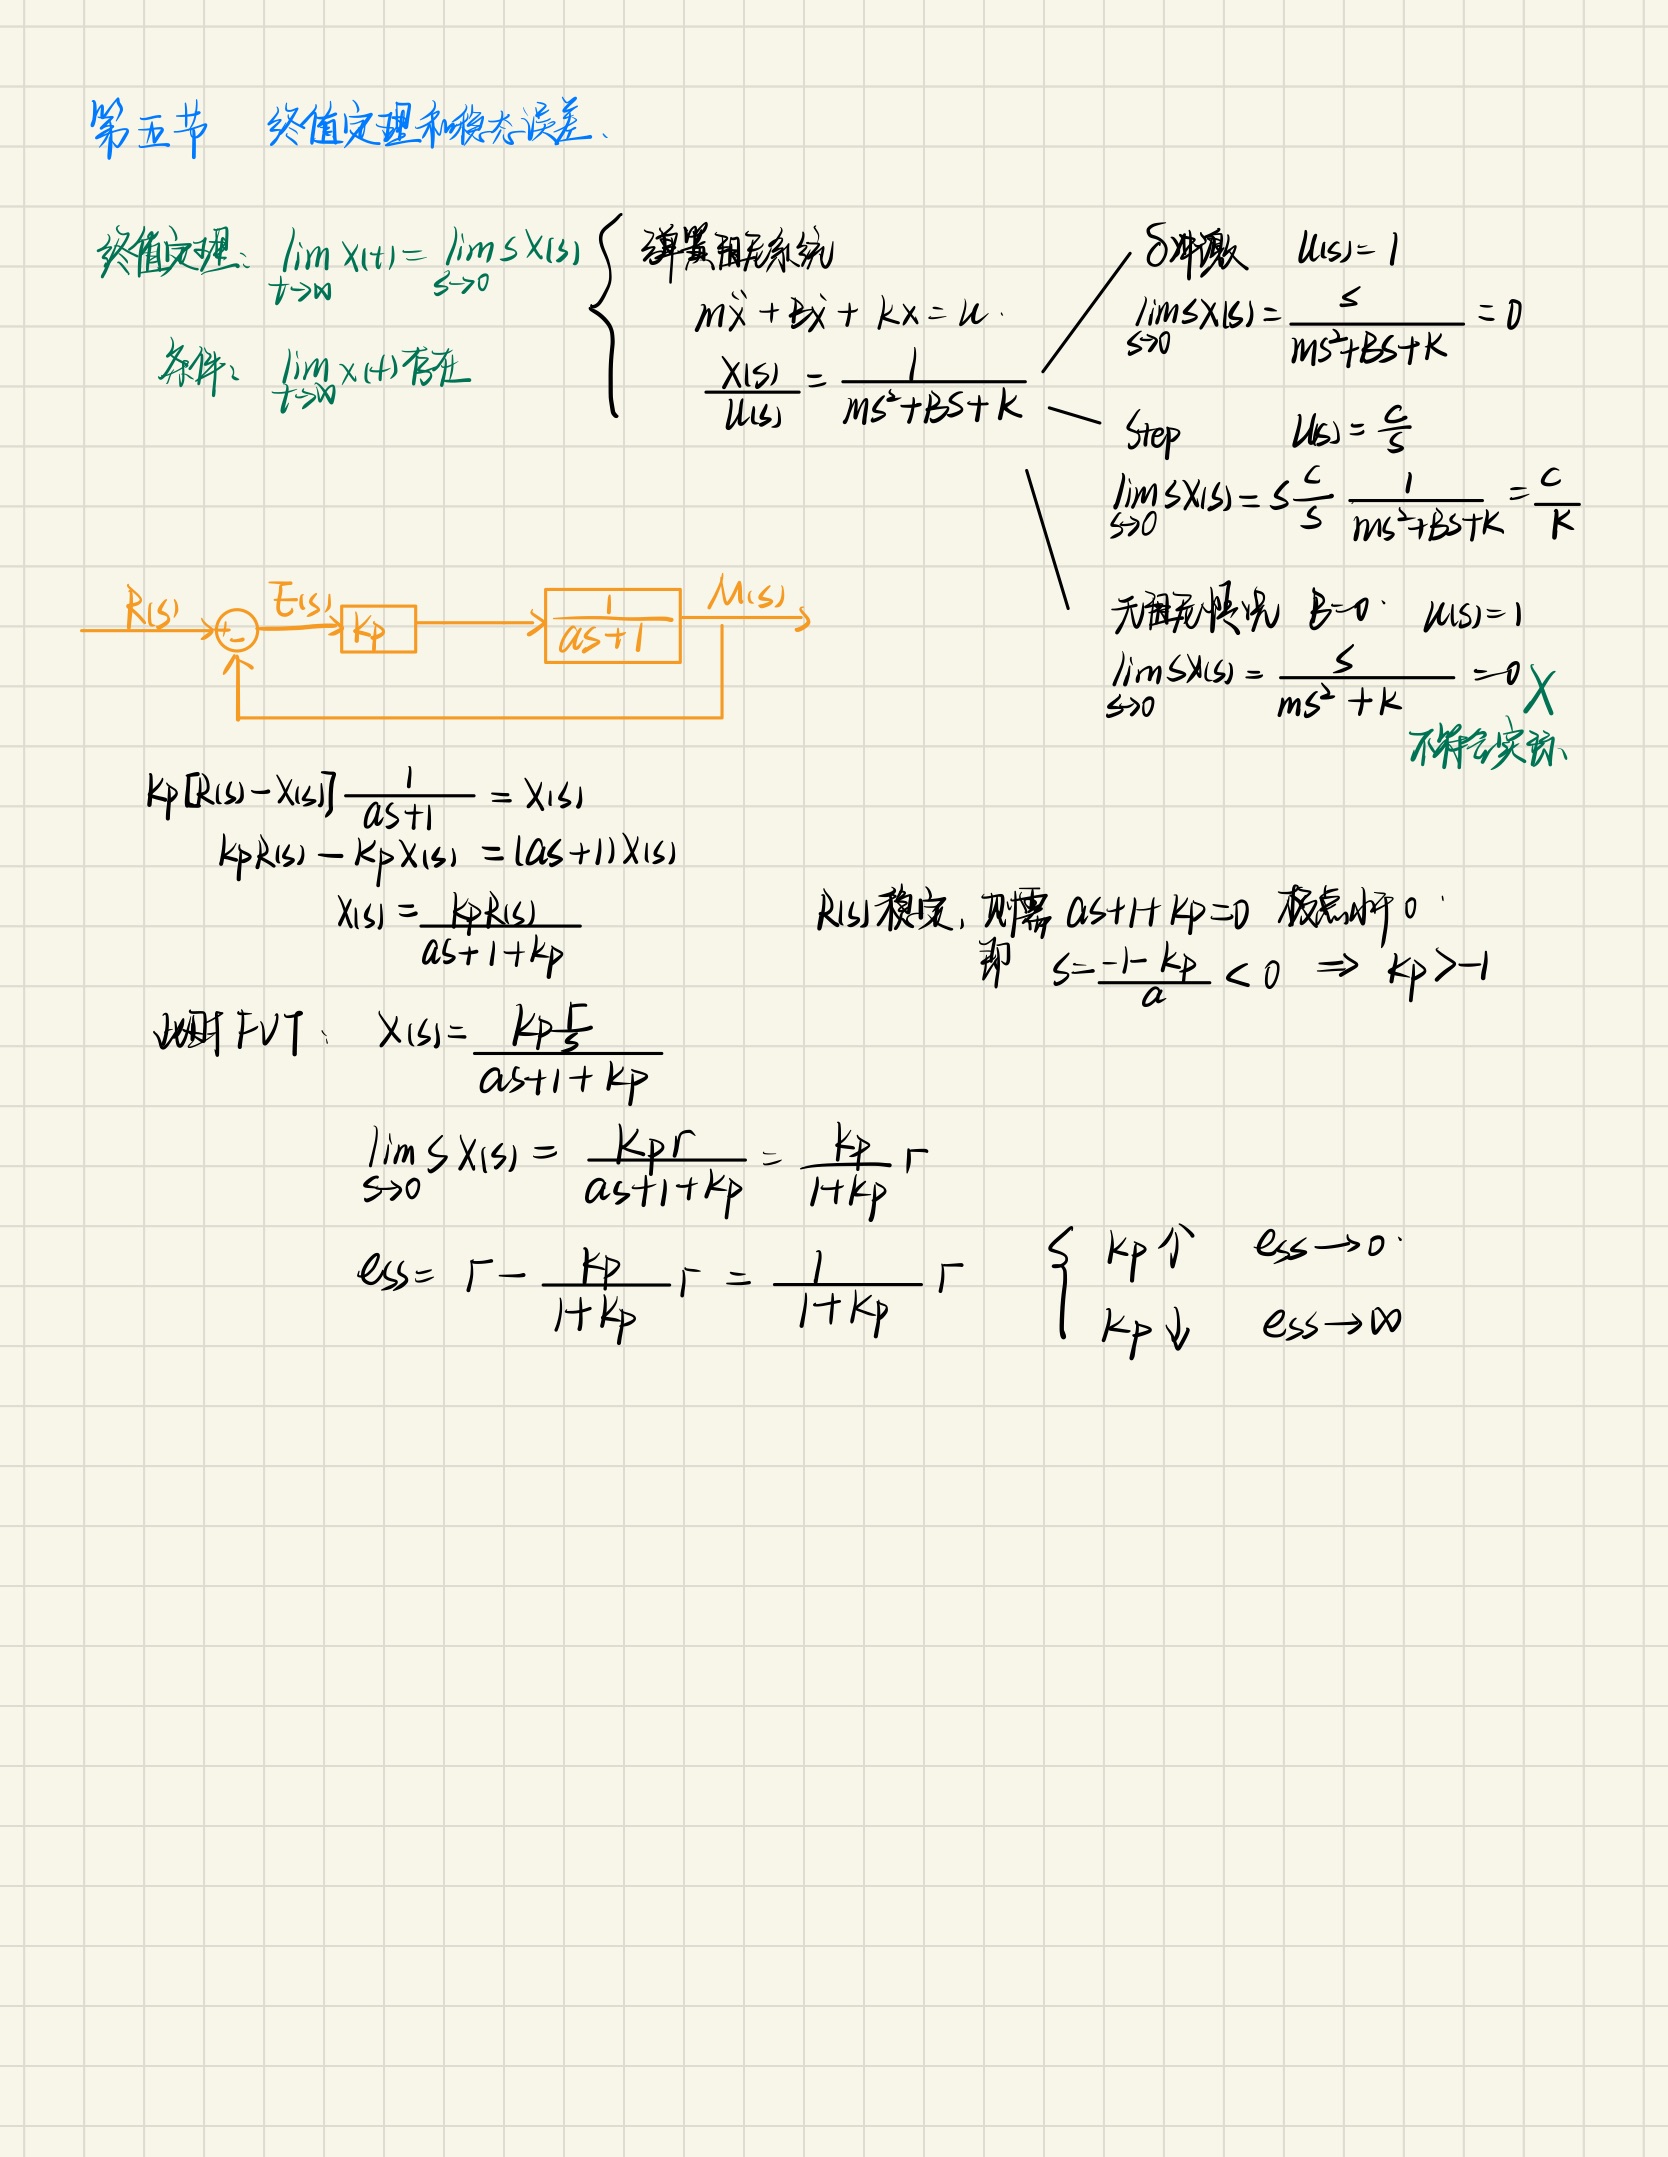 第五节 终值定理和稳态误差.
终值定理: lim x(t) = lim s X(s)
t→∞ s→0
条件: lim x(t) 存在
t→∞
弹簧阻尼系统
mẍ + Bẋ + kx = u.
X(s)/U(s) = 1/(ms²+Bs+K)
δ冲激 U(s) = 1
lim sX(s) = s/(ms²+Bs+K) = 0
s→0
Step U(s) = c/s
lim sX(s) = s c/s 1/(ms²+Bs+K) = c/K
s→0
无阻尼情况 B=0. U(s) = 1
lim sX(s) = s/(ms²+K) = 0 X
s→0
不符合实际.
R(s) + - E(s) Kp 1/(as+1)
Kp[R(s) - X(s)] 1/(as+1) = X(s)
KpR(s) - KpX(s) = (as+1)X(s)
X(s) = KpR(s)/(as+1+Kp)
R(s)稳定, 则需 as+1+Kp=0 极点小于0.
即 s = (-1-Kp)/a < 0 ⇒ Kp > -1
此时 FVT: X(s) = Kp r/s/(as+1+Kp)
lim s X(s) = Kp r/(as+1+Kp) = Kp/(1+Kp) r
s→0
ess = r - Kp/(1+Kp) r = 1/(1+Kp) r
Kp↑ ess→0.
Kp↓ ess→∞